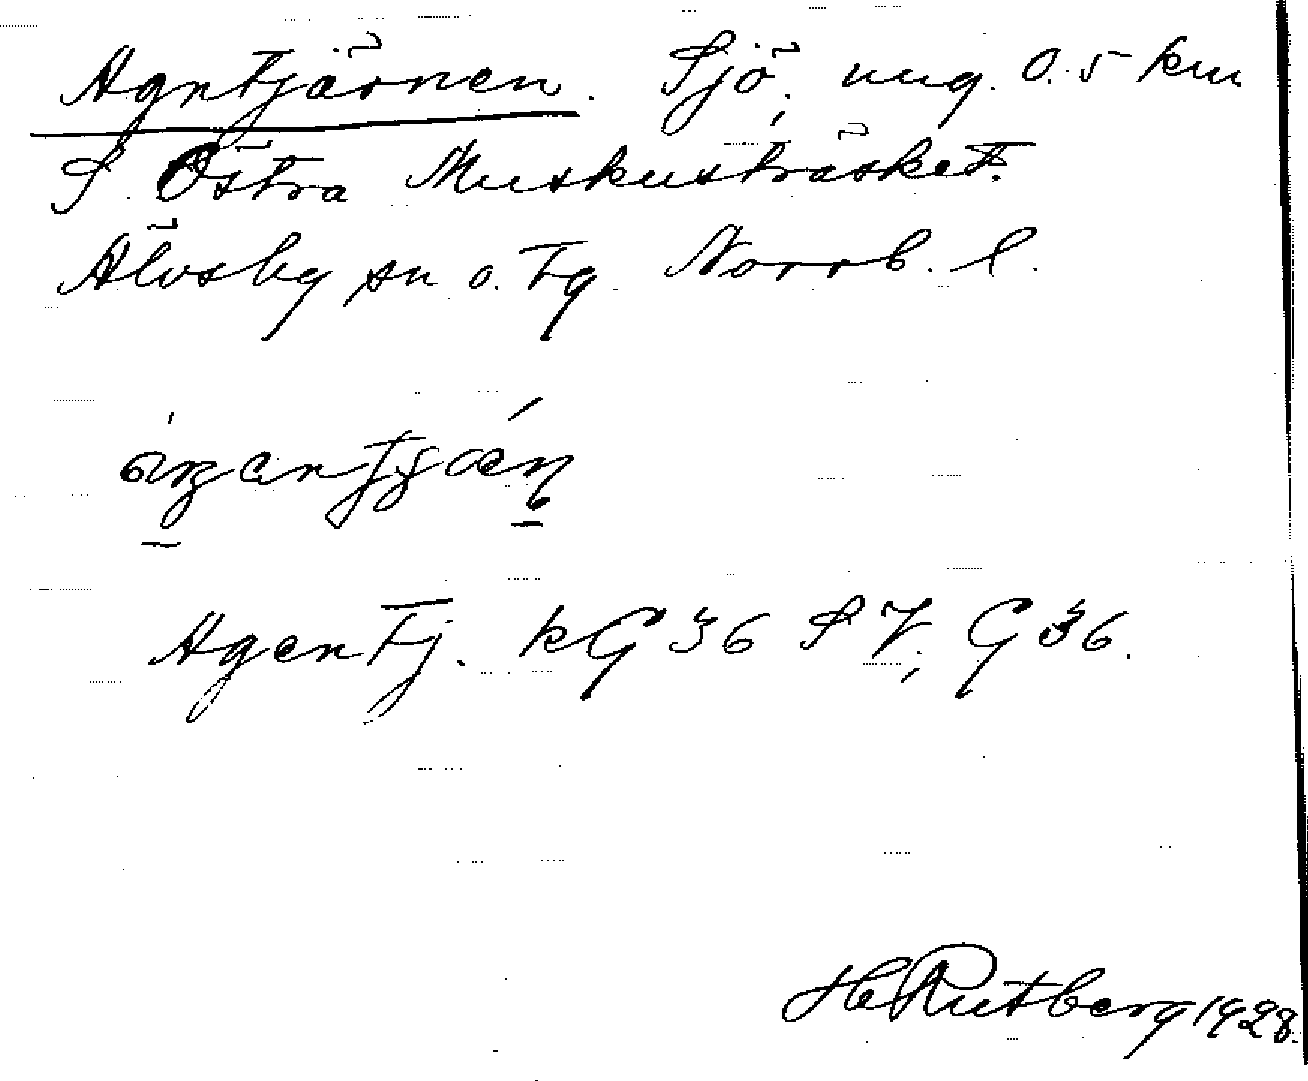 Agntjärnen. Sjö, ung. 0.5 km
S. Östra Muskusträsket.
Älvsby sn o. tg. Norrb. l.
Agentj. kG 36 SV, G 36.
H. Rutberg 1928.